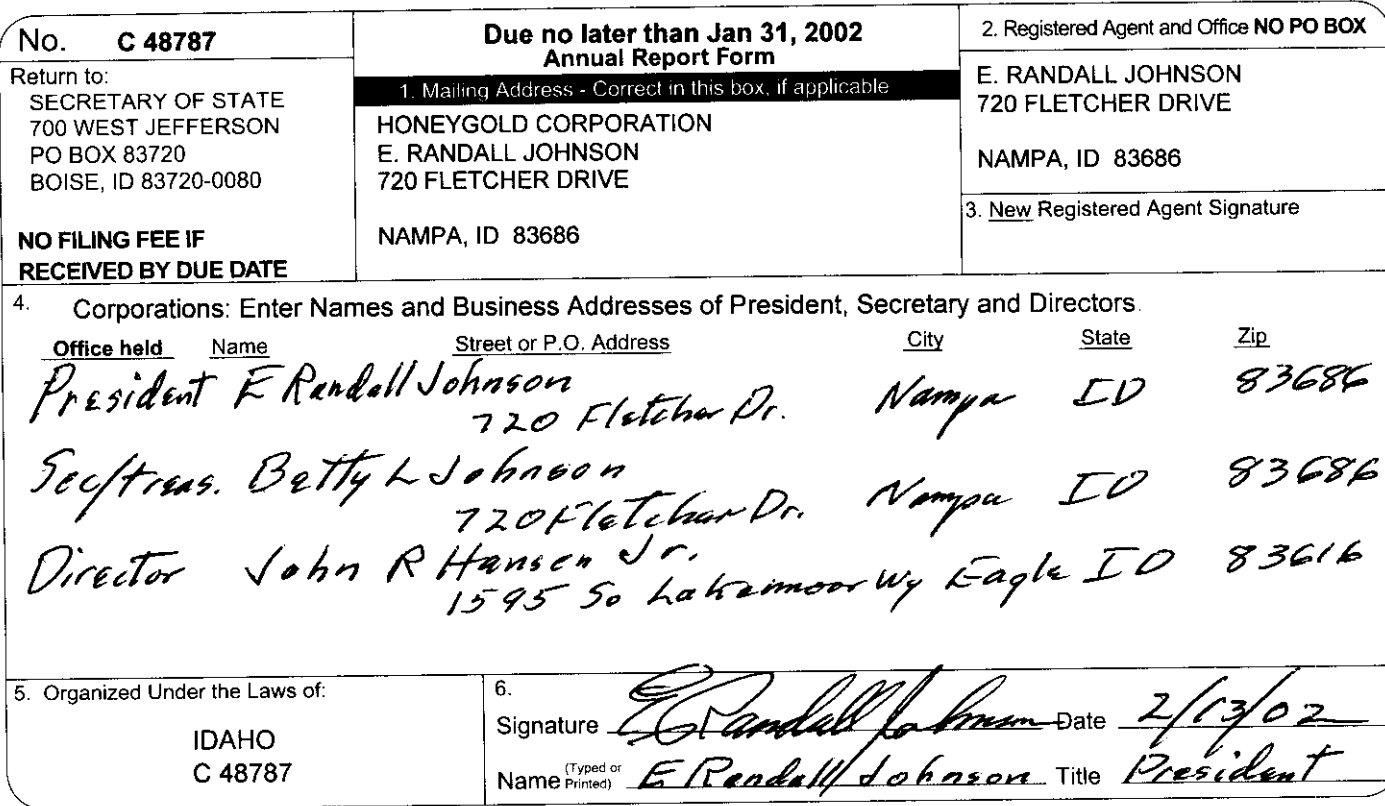 No. C 48787
Return to:
SECRETARY OF STATE
700 WEST JEFFERSON
PO BOX 83720
BOISE, ID 83720-0080
NO FILING FEE IF
RECEIVED BY DUE DATE
Due no later than Jan 31, 2002
Annual Report Form
1. Mailing Address - Correct in this box, if applicable
HONEYGOLD CORPORATION
E. RANDALL JOHNSON
720 FLETCHER DRIVE
NAMPA, ID 83686
2. Registered Agent and Office NO PO BOX
E. RANDALL JOHNSON
720 FLETCHER DRIVE
NAMPA, ID 83686
3. New Registered Agent Signature
4. Corporations: Enter Names and Business Addresses of President, Secretary and Directors.
Office held Name Street or P.O. Address City State Zip
President E Randall Johnson
720 Fletcher Dr. Nampa ID 83686
Sec/treas. Betty L Johnson
720 Fletcher Dr. Nampa ID 83686
Director John R Hansen Jr.
1595 So Lakemoor Wy Eagle ID 83616
5. Organized Under the Laws of:
IDAHO
C 48787
6.
Signature E Randall Johnson Date 2/13/02
Name (Typed or Printed) E Randall Johnson Title President